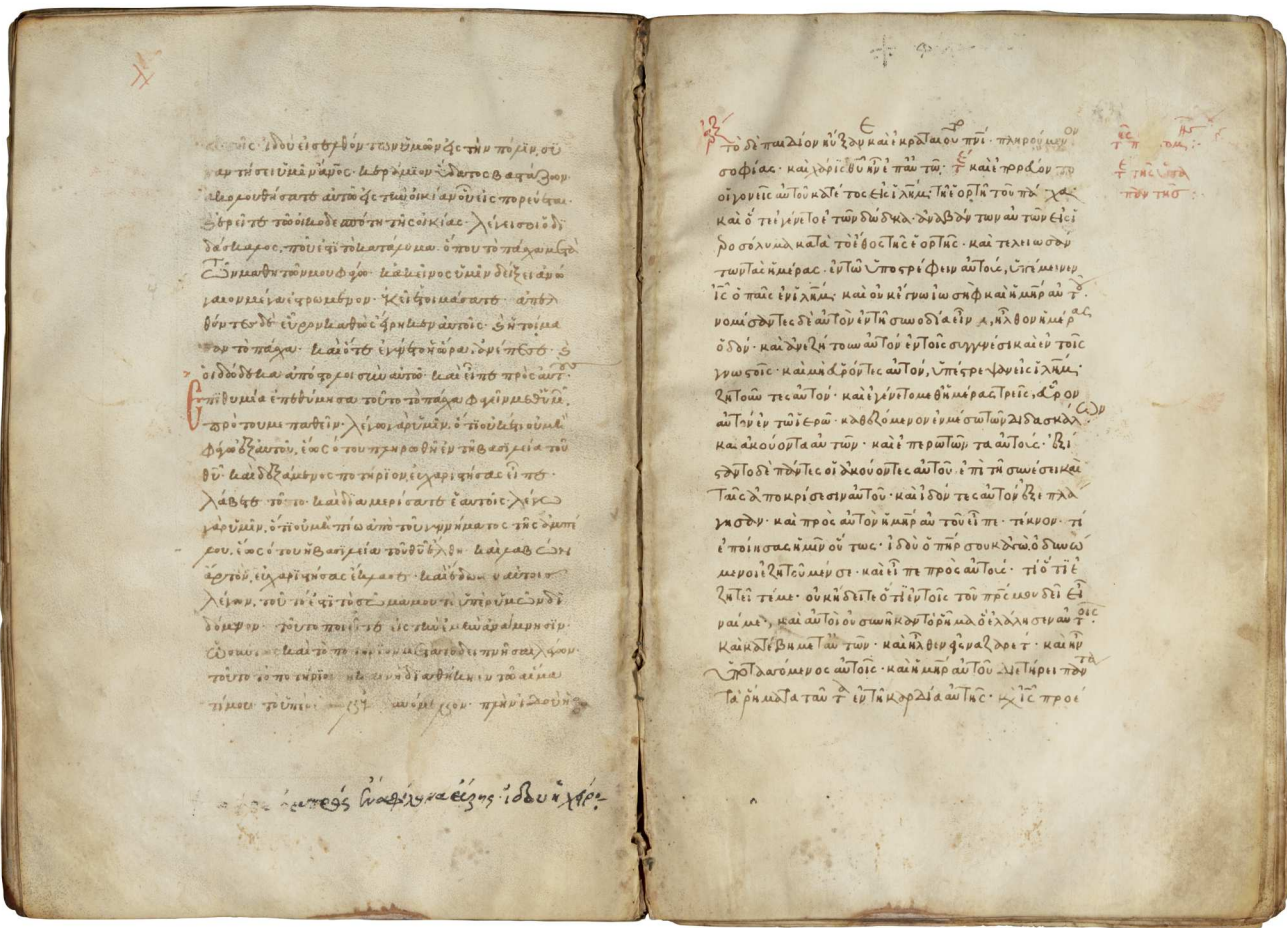 ἰδοὺ εἰσελθόντων ὑμῶν εἰς τὴν πόλιν, συ
ναντήσει ὑμῖν ἄνος κεράμιον ὕδατος βαστάζων·
ἀκολουθήσατε αὐτῶ εἰς τὴν οἰκίαν οὗ εἰσπορεύεται·
ἐρεῖτε τῶ οἰκοδεσπότη τῆς οἰκίας· λέγει σοι ὁ δι
δάσκαλος, ποῦ ἐστι τὸ κατάλυμα ὅπου τὸ πάσχα μετὰ
τῶν μαθητῶν μου φάγω· κἀκεῖνος ὑμῖν δείξει ἀνώ
γαιον μέγα ἐστρωμένον· κἀκεῖ ἑτοιμάσατε· ἀπελ
θόντες δὲ εὗρον καθὼς εἴρηκεν αὐτοῖς· καὶ ἡτοίμα
σαν τὸ πάσχα· καὶ ὅτε ἐγένετο ἡ ὥρα, ἀνέπεσε καὶ
οἱ δώδεκα ἀπόστολοι σὺν αὐτῶ· καὶ εἶπε πρὸς αὐτούς·
Επιθυμία ἐπεθύμησα τοῦτο τὸ πάσχα φαγεῖν μεθ' ὑμῶν,
πρὸ τοῦ με παθεῖν· λέγω γὰρ ὑμῖν, ὅτι οὐκέτι οὐ μὴ
φάγω ἐξ αὐτοῦ, ἕως ὅτου πληρωθῆ ἐν τῆ βασιλεία τοῦ
θυ· καὶ δεξάμενος ποτήριον, εὐχαριστήσας εἶπε·
λάβετε τοῦτο καὶ διαμερίσατε ἑαυτοῖς· λέγω
γὰρ ὑμῖν, ὅτι οὐ μὴ πίω ἀπὸ τοῦ γεννήματος τῆς ἀμπέ
λου, ἕως ὅτου ἡ βασιλεία τοῦ θυ ἔλθη· καὶ λαβὼν
ἄρτον, εὐχαριστήσας ἔκλασε· καὶ ἔδωκεν αὐτοῖς
λέγων, τοῦτό ἐστι τὸ σῶμά μου τὸ ὑπὲρ ὑμῶν δι
δόμενον· τοῦτο ποιεῖτε εἰς τὴν ἐμὴν ἀνάμνησιν·
ὡσαύτως καὶ τὸ ποτήριον μετὰ τὸ δειπνῆσαι λέγων·
τοῦτο τὸ ποτήριον ἡ καινὴ διαθήκη ἐν τῶ αἵματί
μου τὸ ὑπὲρ ἐκχυνόμενον· πλὴν ἰδοὺ ἡ
ἰδοὺ ἡ χεὶρ
τὸ δὲ παιδίον ηὔξανε καὶ ἐκραταιοῦτο πνι· πληρούμενον
σοφίας· καὶ χάρις θυ ἦν ἐπ' αὐτῶ· καὶ ἐπορεύοντο
οἱ γονεῖς αὐτοῦ κατ' ἔτος εἰς ιλημ τῆ ἑορτῆ τοῦ πάσχα·
καὶ ὅτε ἐγένετο ἐτῶν δώδεκα· ἀναβάντων αὐτῶν εἰς ἱε
ροσόλυμα κατὰ τὸ ἔθος τῆς ἑορτῆς· καὶ τελειωσάν
των τὰς ἡμέρας· ἐν τῶ ὑποστρέφειν αὐτούς, ὑπέμεινεν
ις ὁ παῖς ἐν ιλημ· καὶ οὐκ ἔγνω ἰωσὴφ καὶ ἡ μηρ αὐτοῦ·
νομίσαντες δὲ αὐτὸν ἐν τῆ συνοδία εἶναι, ἦλθον ἡμέρας
ὁδόν· καὶ ἀνεζήτουν αὐτὸν ἐν τοῖς συγγενέσι καὶ ἐν τοῖς
γνωστοῖς· καὶ μὴ εὑρόντες αὐτόν, ὑπέστρεψαν εἰς ιλημ·
ζητοῦντες αὐτόν· καὶ ἐγένετο μεθ' ἡμέρας τρεῖς, εὗρον
αὐτὸν ἐν τῶ ἱερῶ· καθεζόμενον ἐν μέσω τῶν διδασκάλων
καὶ ἀκούοντα αὐτῶν· καὶ ἐπερωτῶντα αὐτούς· ἐξί
σταντο δὲ πάντες οἱ ἀκούοντες αὐτοῦ· ἐπὶ τῆ συνέσει καὶ
ταῖς ἀποκρίσεσιν αὐτοῦ· καὶ ἰδόντες αὐτὸν ἐξεπλά
γησαν· καὶ πρὸς αὐτὸν ἡ μηρ αὐτοῦ εἶπε· τέκνον· τί
ἐποίησας ἡμῖν οὕτως· ἰδοὺ ὁ πηρ σου κἀγὼ ὀδυνώ
μενοι ἐζητοῦμέν σε· καὶ εἶπε πρὸς αὐτούς· τί ὅτι ἐ
ζητεῖτέ με· οὐκ ἤδειτε ὅτι ἐν τοῖς τοῦ πρς μου δεῖ εἶ
ναί με, καὶ αὐτοὶ οὐ συνῆκαν τὸ ῥῆμα ὃ ἐλάλησεν αὐτοῖς·
καὶ κατέβη μετ' αὐτῶν· καὶ ἦλθεν εἰς ναζαρέτ· καὶ ἦν
ὑποτασσόμενος αὐτοῖς· καὶ ἡ μηρ αὐτοῦ διετήρει πάντα
τὰ ῥήματα ταῦτα ἐν τῆ καρδία αὐτῆς· καὶ ις προέ